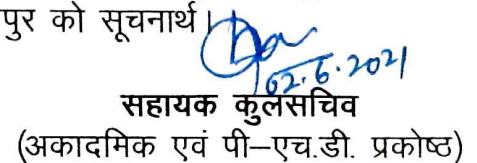 पुर को सूचनार्थ।
02.6.2021
सहायक कुलसचिव
(अकादमिक एवं पी–एच.डी. प्रकोष्ठ)